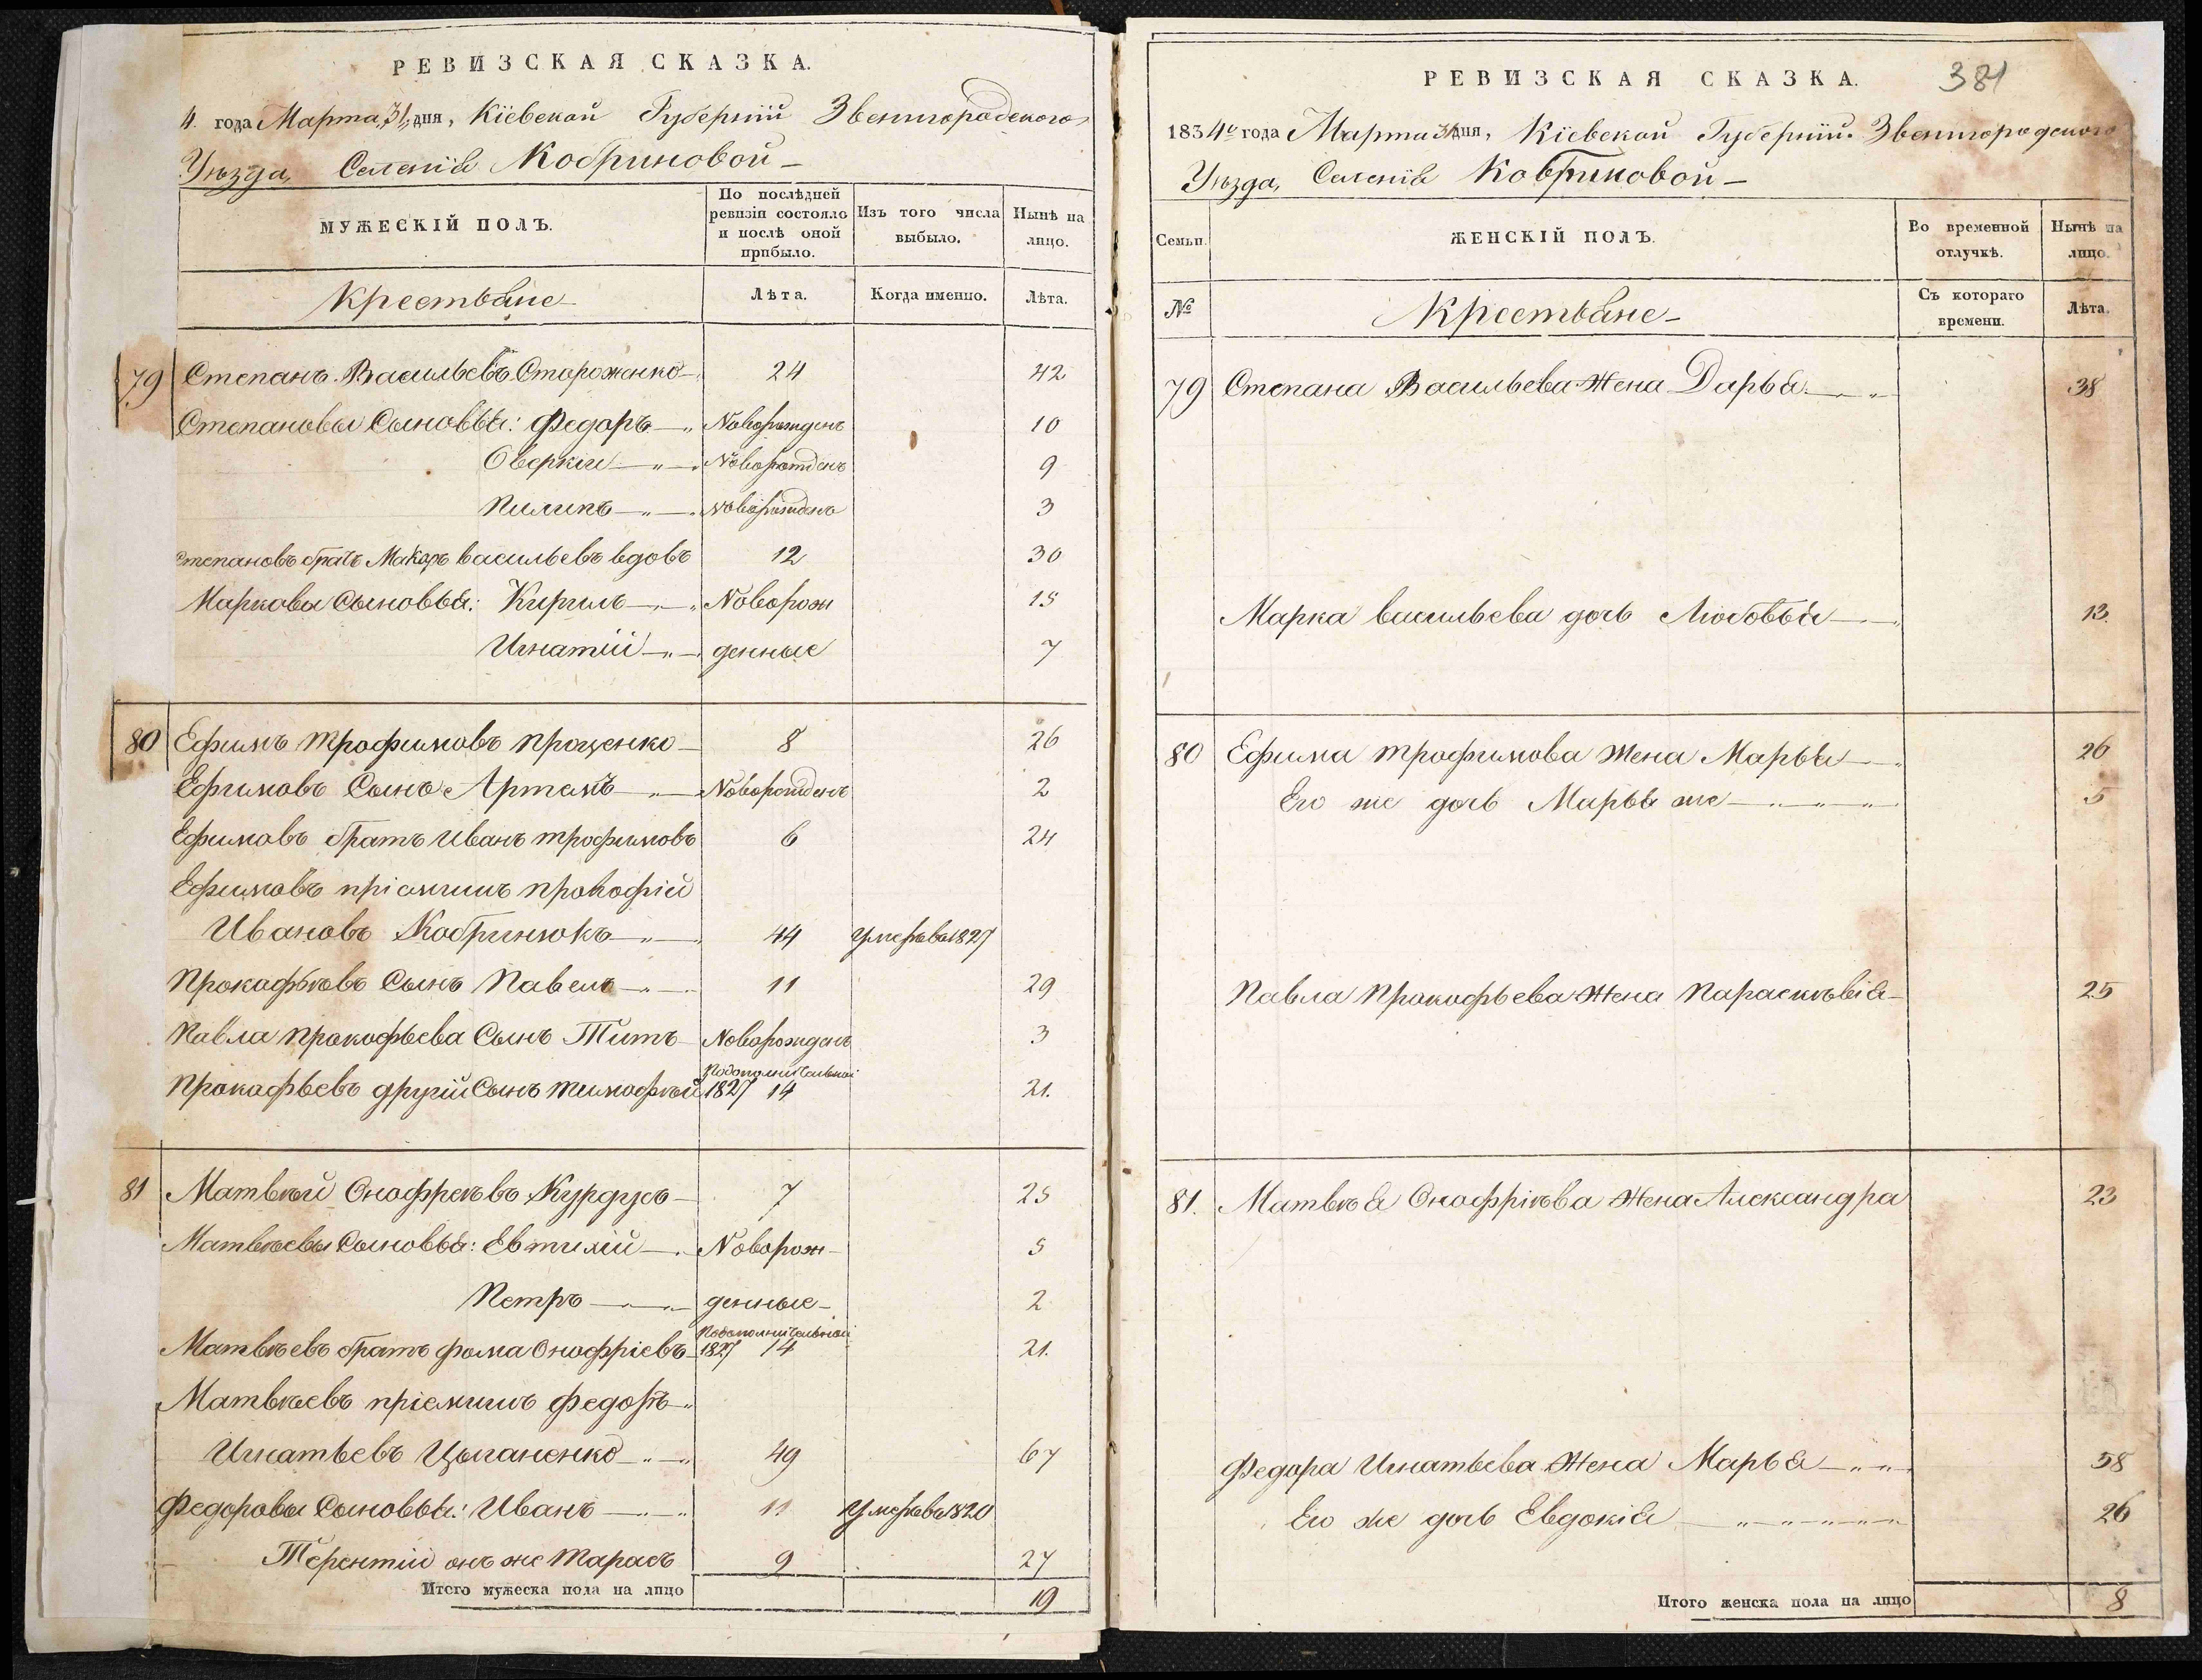 РЕВИЗСКАЯ СКАЗКА.
4. года Марта 31 дня, Кіевской Губерніи Звенигородскаго
Уѣзда, Селенія Кобриновой
МУЖЕСКІЙ ПОЛЪ.
По послѣдней ревизіи состояло и послѣ оной прибыло.
Изъ того числа выбыло.
Нынѣ на лицо.
Крестьяне
Лѣта.
Когда именно.
Лѣта.
79 Степанъ Васильевъ Стороженко 24 42
Степановы Сыновья: Федоръ Новорожденъ 10
Оверкій Новорожденъ 9
Пилипъ Новорожденъ 3
Степановъ братъ Макаръ Васильевъ вдовъ 12 30
Марковы Сыновья: Кирилъ Новорож 15
Игнатій денные 7
80 Ефимъ Трофимовъ Проценко 8 26
Ефимовъ Сынъ Артемъ Новорожденъ 2
Ефимовъ братъ Иванъ Трофимовъ 6 24
Ефимовъ пріемышъ Прокофій
Ивановъ Кобринюкъ 44 Умеръ въ 1827
Прокофьевъ Сынъ Павелъ 11 29
Павла Прокофьева Сынъ Титъ Новорожденъ 3
По дополнительной
Прокофьевъ другій Сынъ Тимофѣй 1827 14 21.
81 Матвѣй Онофреевъ Курдусъ 7 25
Матвѣевы Сыновья: Евтихій Новорож- 5
Петръ денные 2
По дополнительной
Матвѣевъ братъ Фома Онофріевъ 1827 14 21.
Матвѣевъ пріемышъ Федоръ
Игнатьевъ Цыганенко 49 67
Федоровы Сыновья: Иванъ 11 Умеръ въ 1820
Терентій онъ же Тарасъ 9 27
Итого мужеска пола на лицо 19
РЕВИЗСКАЯ СКАЗКА. 381
1834го года Марта 31 дня, Кіевской Губерніи Звенигородскаго
Уѣзда, Селенія Кобриновой
Семьи.
ЖЕНСКІЙ ПОЛЪ.
Во временной отлучкѣ.
Нынѣ на лицо.
№
Крестьяне
Съ котораго времени.
Лѣта.
79 Степана Васильева Жена Дарья 38
Марка Васильева дочь Любовья 13.
80 Ефима Трофимова Жена Марья 26
Его же дочь Марья же 5
Павла Прокофьева Жена Параскѣвія 25
81. Матвѣя Онофріѣва Жена Александра 23
Федора Игнатьева Жена Марья 58
Его же дочь Евдокія 26
Итого женска пола на лицо 8